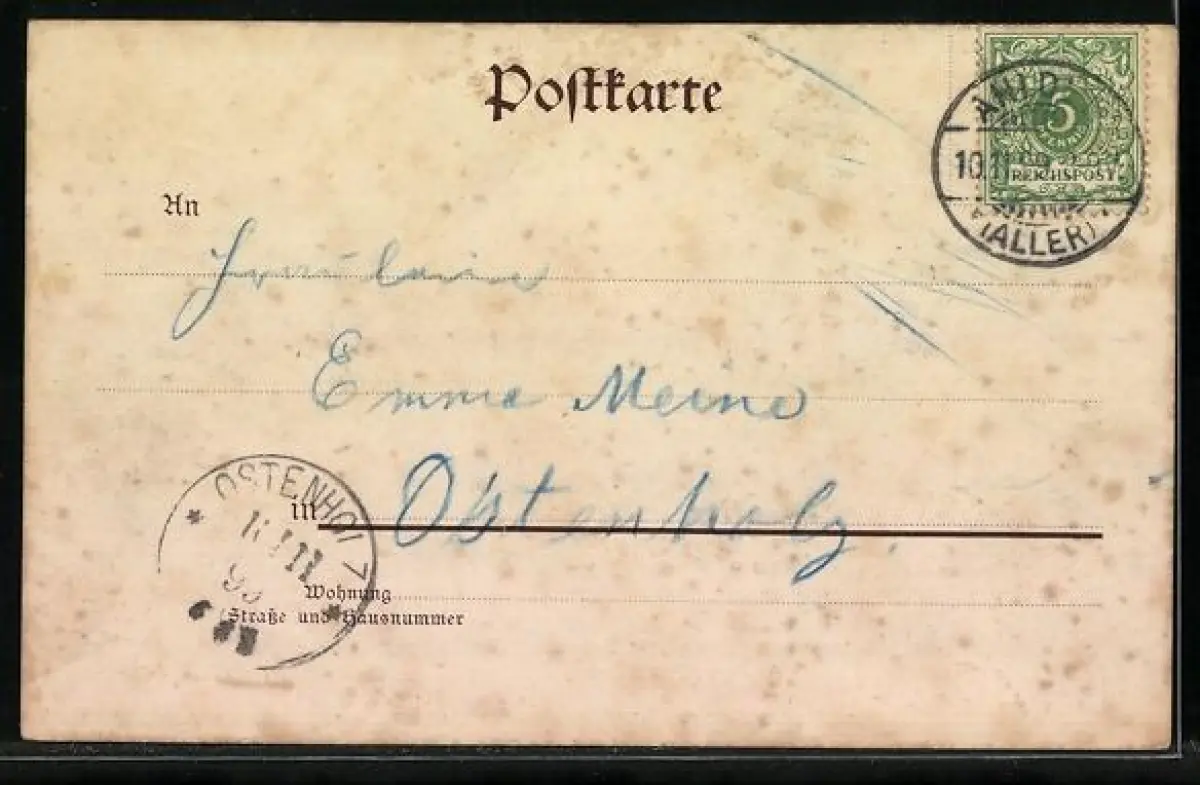 Postkarte
5
REICHSPOST
10.11.
(ALLER)
An
Fräulein
Emma Meine
in Ostenholz.
OSTENHOLZ
11
99
Wohnung
(Straße und Hausnummer